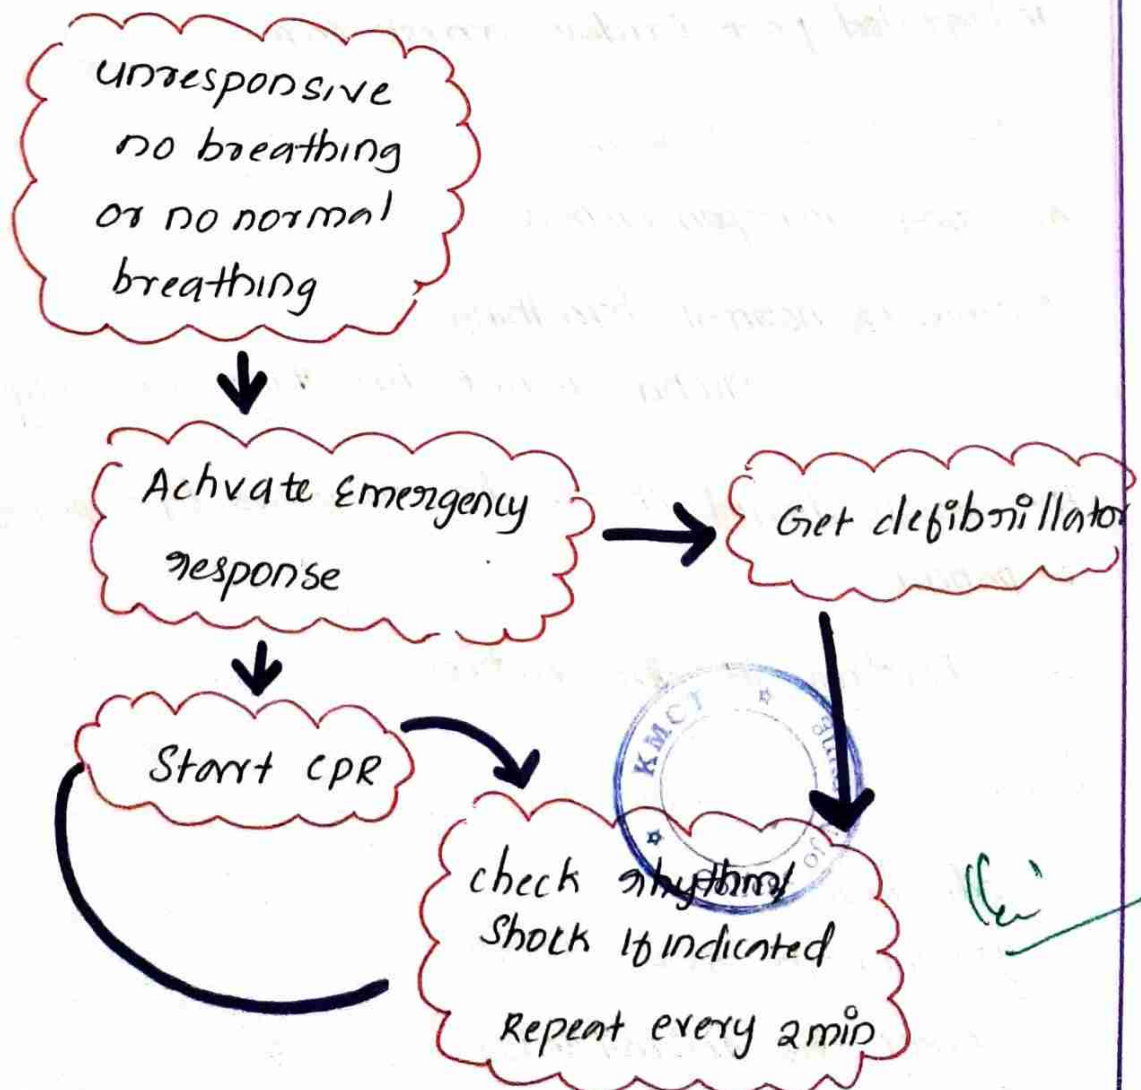 unresponsive
no breathing
or no normal
breathing
Activate Emergency
response
Get defibrillator
Start CPR
KMCT
check rhythm/
Shock If indicated
Repeat every 2min